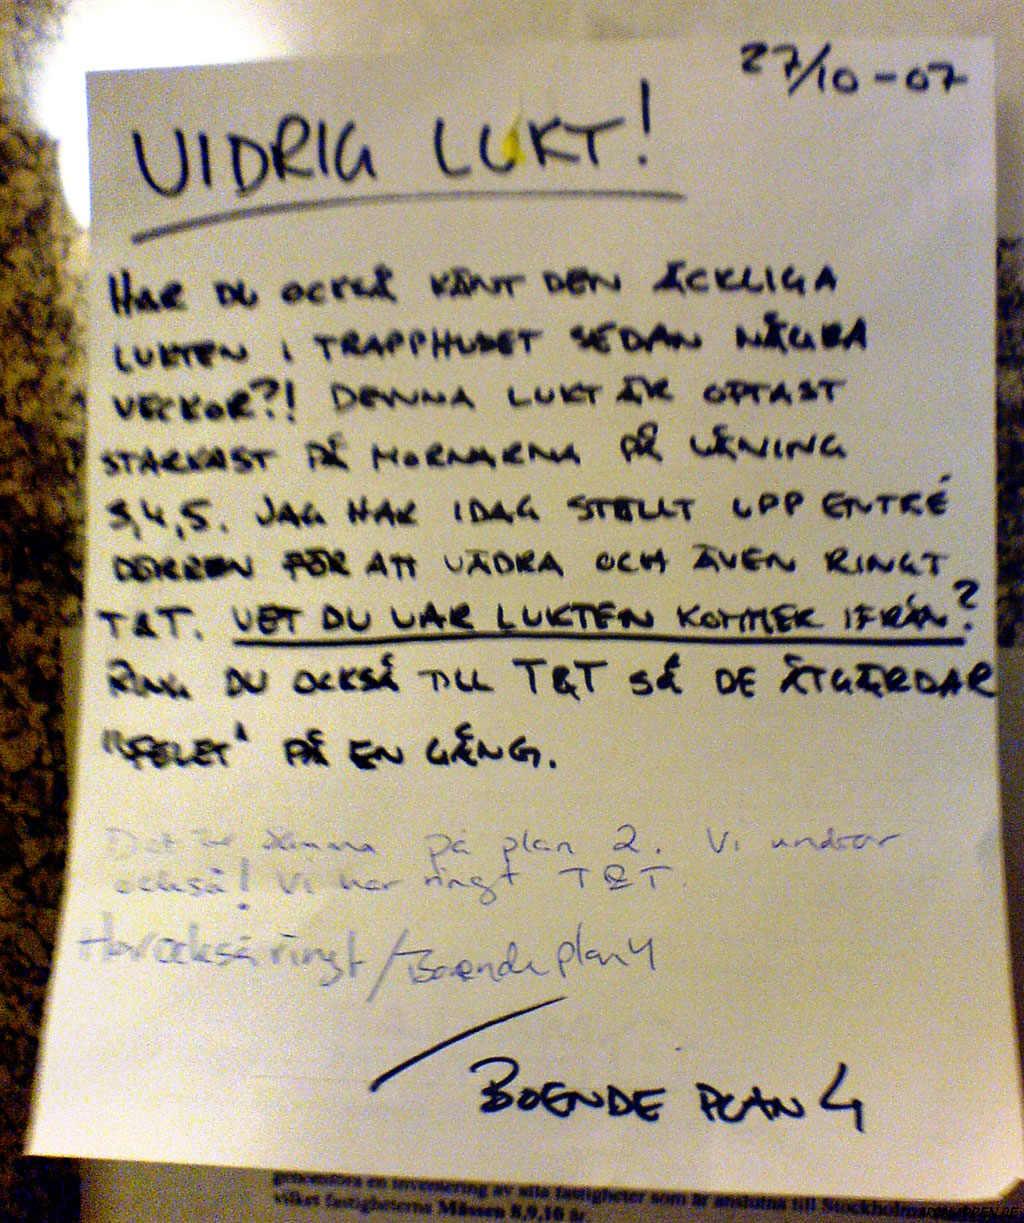 27/10-07
VIDRIG LUKT!
HAR DU OCKSÅ KÄNT DEN ÄCKLIGA
LUKTEN I TRAPPHUSET SEDAN NÅGRA
VECKOR?! DENNA LUKT ÄR OFTAST
STARKAST PÅ MORNARNA PÅ VÅNING
3,4,5. JAG HAR IDAG STÄLLT UPP ENTRÉ
DÖRREN FÖR ATT VÄDRA OCH ÄVEN RINGT
T&T. VET DU VAR LUKTEN KOMMER IFRÅN?
RING DU OCKSÅ TILL T&T SÅ DE ÅTGÄRDAR
"FELET" PÅ EN GÅNG.
Det är samma på plan 2. Vi undrar
också! Vi har ringt T&T.
Har också ringt /Boende plan 4
/ BOENDE PLAN 4
genomföra en inventering av alla fastigheter som är anslutna till Stockholm
vilket fastigheterna Mässen 8,9,10 är.